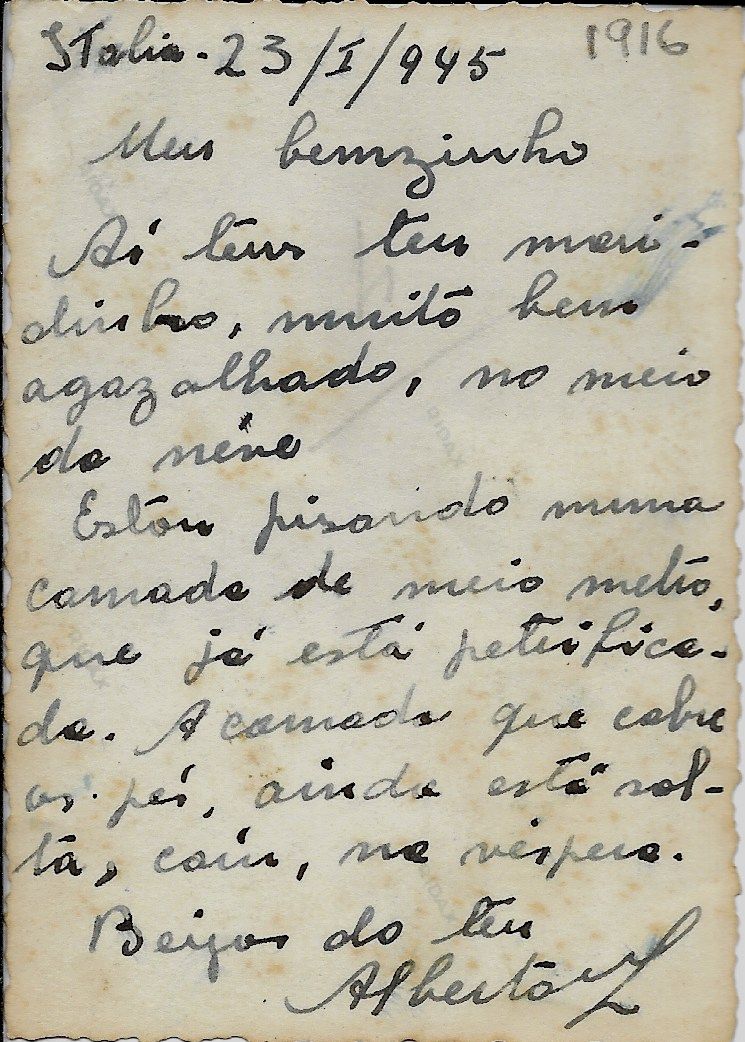 Italia - 23/I/945
1916
Meu bemzinho
Aí tens teu mari-
dinho, muito bem
agazalhado, no meio
da néve
Estou pisando numa
camada de meio metro,
que já está petrifica-
da. A camada que cobre
os pés, ainda está sol-
ta, caiu, na véspera.
Beijos do teu
Alberto